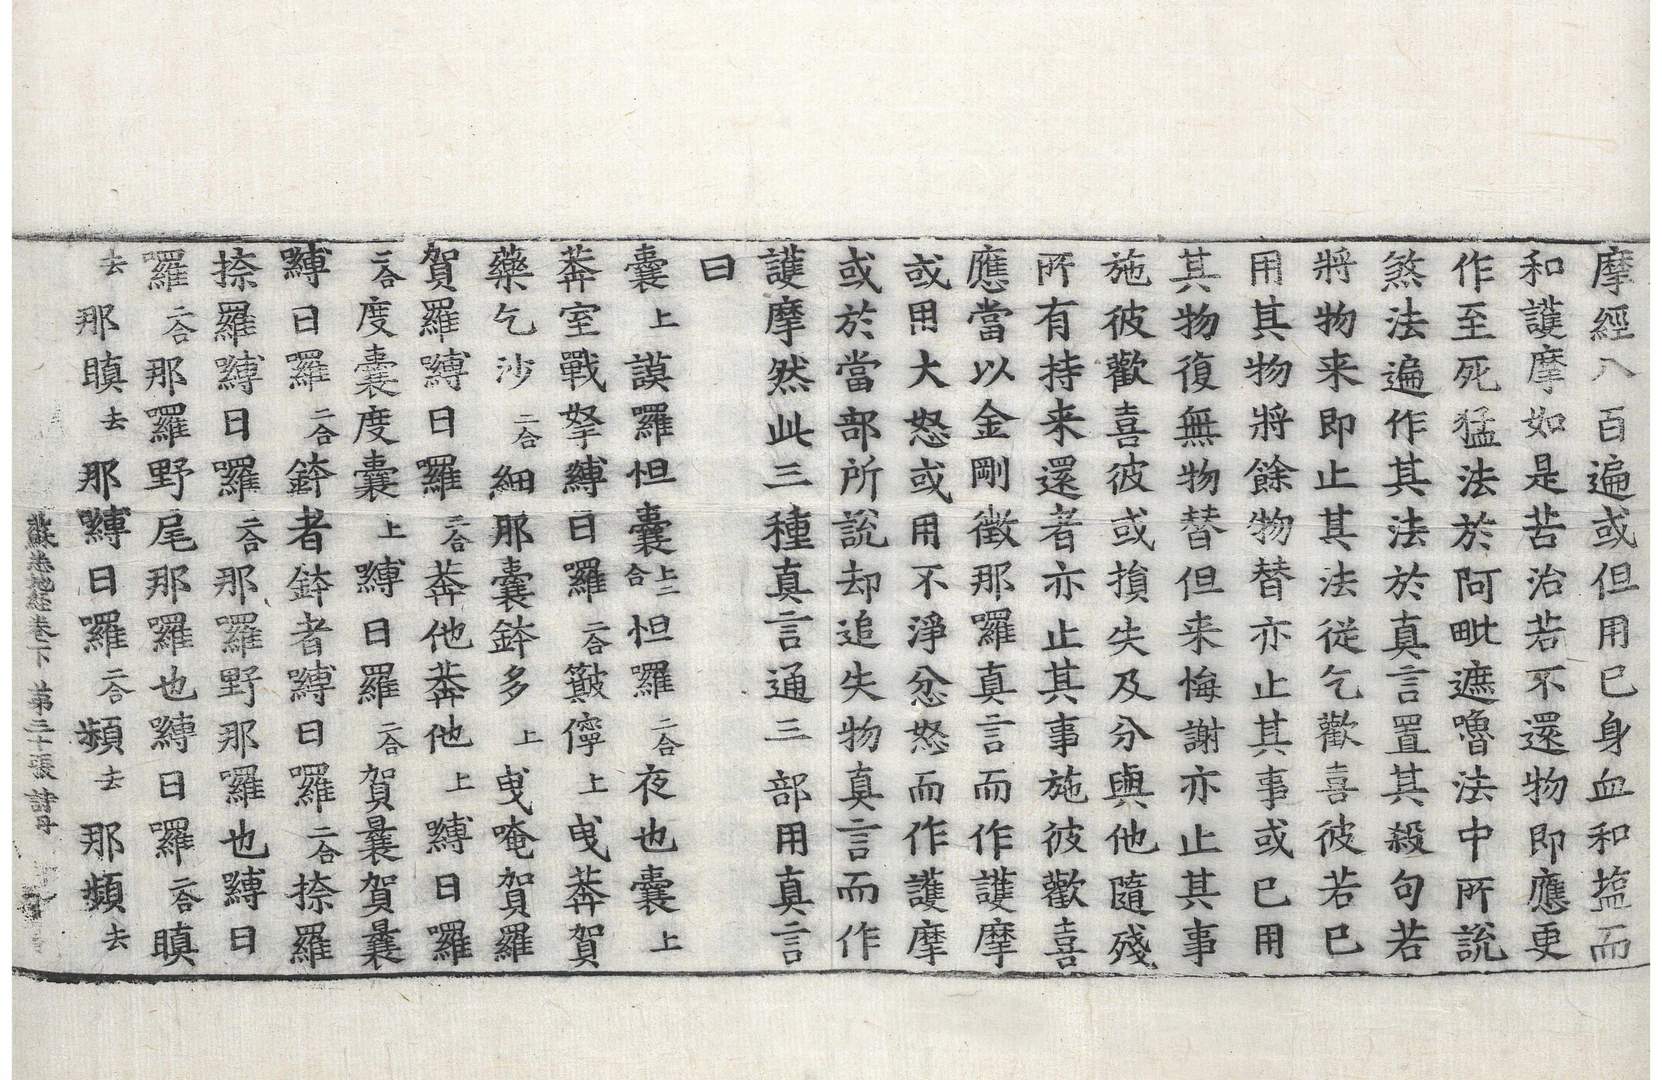 摩經八百遍或但用已身血和塩而
和護摩如是苦治若不還物即應更
作至死猛法於阿毗遮嚕法中所說
煞法遍作其法於真言置其殺句若
將物来即止其法從乞歡喜彼若已
用其物將餘物替亦止其事或已用
其物復無物替但来悔謝亦止其事
施彼歡喜彼或損失及分與他隨殘
所有持来還者亦止其事施彼歡喜
應當以金剛徵那囉真言而作護摩
或用大怒或用不淨忿怒而作護摩
或於當部所說却追失物真言而作
護摩然此三種真言通三部用真言
曰
囊上謨囉怛囊上二合怛囉二合夜也囊上
莾室戰拏縛日羅二合簸儜上曵莾賀
藥乞沙二合細那囊鉢多上曳唵賀羅
賀羅縛日囉二合莾他莾他上縛日囉
二合度囊度囊上縛日羅二合賀曩賀曩
縛日囉二合鉢者鉢者縛日囉二合捺羅
捺羅縛日囉二合那囉野那囉也縛日
囉二合那囉野尾那囉也縛日羅二合瞋
去那瞋去那縛日囉二合頻去那頻去
蘇悉地経卷下 第二十張 詩丹